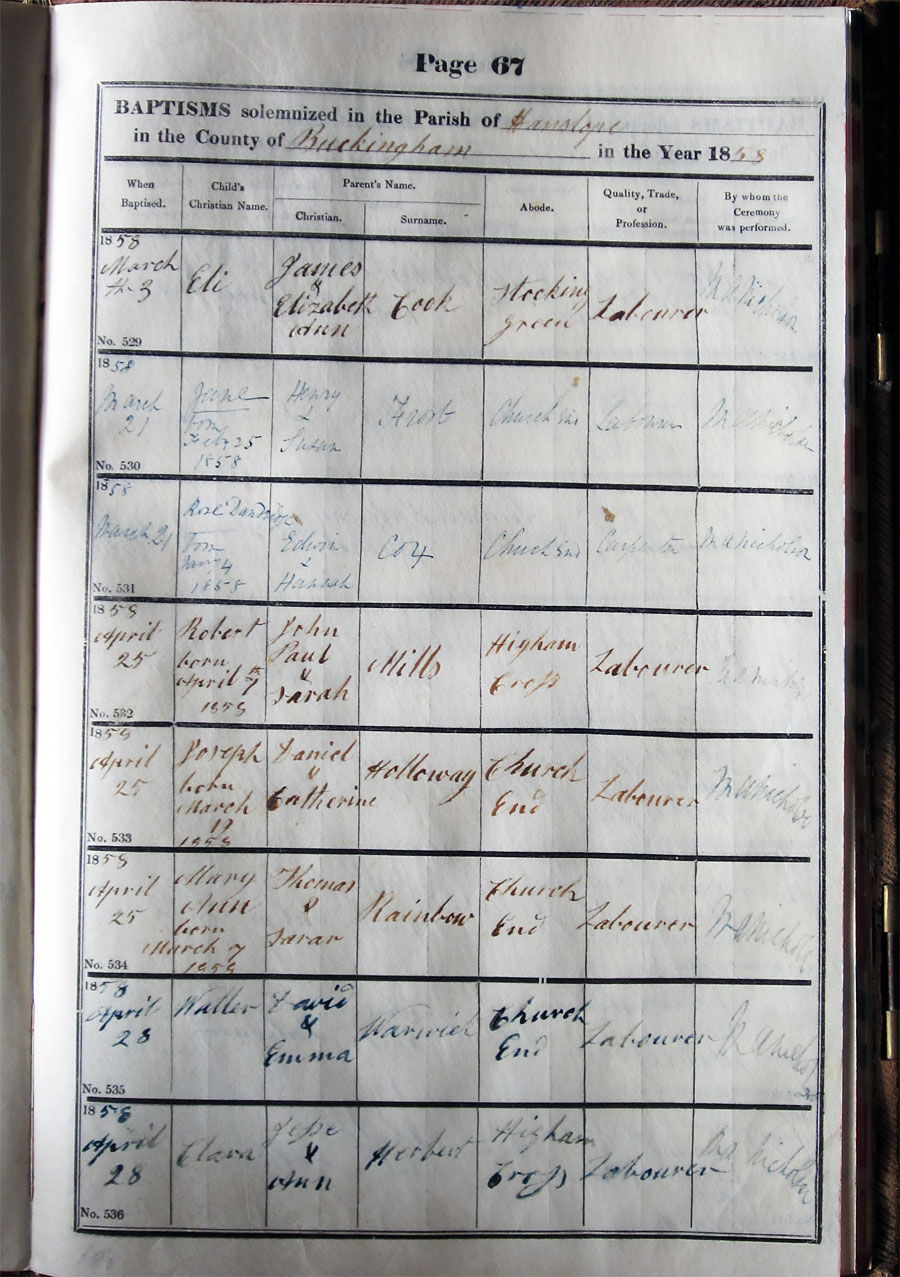 Page 67
BAPTISMS solemnized in the Parish of Hanslope
in the County of Buckingham in the Year 1858
When Baptised.
Child's Christian Name.
Parent's Name.
Christian.
Surname.
Abode.
Quality, Trade, or Profession.
By whom the Ceremony was performed.
1858
March
Eli
James
&
Elizabeth
Ann
Cook
Stocking
Green
Labourer
No. 529
1858
March
21
Jane
Born
Feby 25
1858
Henry
&
Susan
Frost
Church End
Labourer
No. 530
1858
March 21
Rose
Born
1858
Edwin
&
Hannah
Cox
Church End
Carpenter
No. 531
1858
April
25
Robert
born
April
1858
John
Paul
&
Sarah
Mills
Higham
Cross
Labourer
No. 532
1858
April
25
Joseph
born
March
19
1858
Daniel
&
Catherine
Holloway
Church
End
Labourer
No. 533
1858
April
25
Mary
Ann
born
March 7
1858
Thomas
&
Sarar
Rainbow
Church
End
Labourer
No. 534
1858
April
28
Walter
David
&
Emma
Warwick
Church
End
Labourer
No. 535
1858
April
28
Clara
Jesse
&
Ann
Herbert
Higham
Cross
Labourer
No. 536